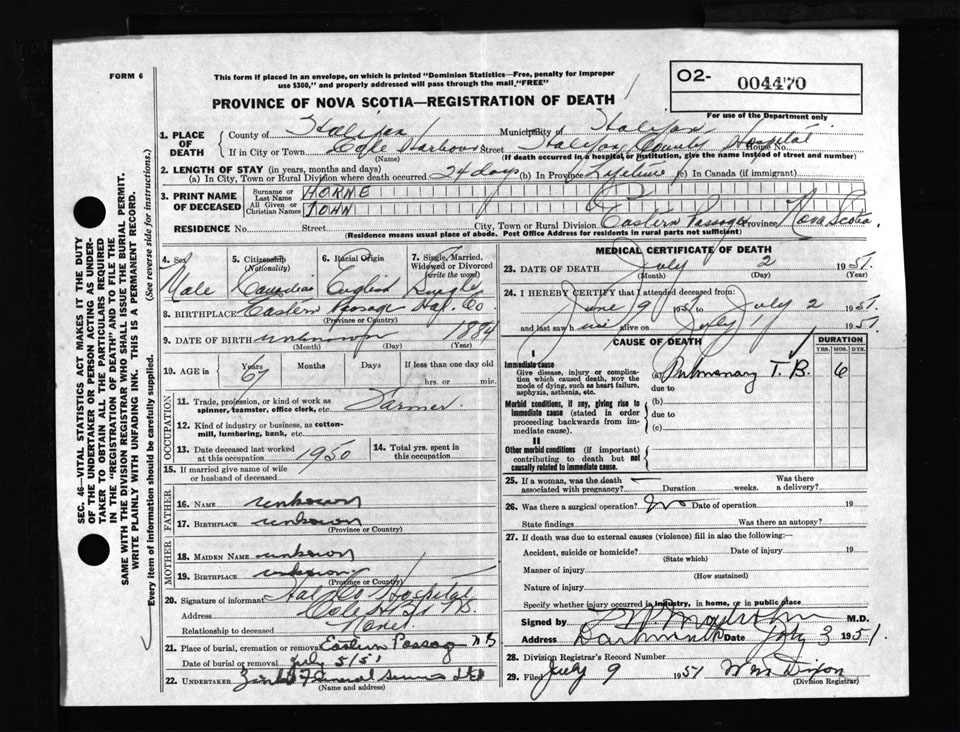 FORM 6
This form if placed in an envelope, on which is printed "Dominion Statistics—Free, penalty for improper
use $300," and properly addressed will pass through the mail, "FREE"
PROVINCE OF NOVA SCOTIA—REGISTRATION OF DEATH
O2- 004470
For use of the Department only
1. PLACE OF DEATH
County of Halifax Municipality of Halifax
If in City or Town Cole Harbour Street Halifax County Hospital House No.
(Name) (If death occurred in a hospital or institution, give the name instead of street and number)
2. LENGTH OF STAY (in years, months and days)
(a) In City, Town or Rural Division where death occurred 24 days (b) In Province Lifetime (c) In Canada (if immigrant)
3. PRINT NAME OF DECEASED
Surname or Last Name HORNE
All Given or Christian Names JOHN
RESIDENCE No. Street City, Town or Rural Division Eastern Passage Province Nova Scotia
(Residence means usual place of abode. Post Office Address for residents in rural parts not sufficient)
4. Sex Male
5. Citizenship (Nationality) Canadian
6. Racial Origin English
7. Single, Married, Widowed or Divorced (write the word) Single
8. BIRTHPLACE Eastern Passage Hal. Co
(Province or Country)
9. DATE OF BIRTH unknown 1884
(Month) (Day) (Year)
10. AGE in Years 67 Months Days If less than one day old
hrs. or min.
OCCUPATION
11. Trade, profession, or kind of work as
spinner, teamster, office clerk, etc. Farmer.
12. Kind of industry or business, as cotton-
mill, lumbering, bank, etc.
13. Date deceased last worked at this occupation 1950
14. Total yrs. spent in this occupation
15. If married give name of wife
or husband of deceased
FATHER
16. NAME unknown
17. BIRTHPLACE unknown
(Province or Country)
MOTHER
18. MAIDEN NAME unknown
19. BIRTHPLACE unknown
(Province or Country)
20. Signature of informant Hal Co Hospital
Address Cole
Relationship to deceased None
21. Place of burial, cremation or removal Eastern Passage
Date of burial or removal July 5/51
22. UNDERTAKER Funeral Service Ltd
(Name and address)
MEDICAL CERTIFICATE OF DEATH
23. DATE OF DEATH July 2 1951.
(Month) (Day)
24. I HEREBY CERTIFY that I attended deceased from:
June 9 1951 to July 2 1951.
and last saw him alive on July 1 1951
CAUSE OF DEATH DURATION
YRS. MOS. DYS.
I
Immediate cause
Give disease, injury or complica-
tion which caused death, NOT the
mode of dying, such as heart failure,
asphyxia, asthenia, etc.
(a) Pulmonary T. B. 6
due to
Morbid conditions, if any, giving rise to
immediate cause (stated in order
proceeding backwards from im-
mediate cause).
(b)
due to
(c)
II
Other morbid conditions (if important)
contributing to death but not
causally related to immediate cause.
25. If a woman, was the death
associated with pregnancy? Duration weeks. Was there a delivery?
26. Was there a surgical operation? No Date of operation 19
State findings Was there an autopsy?
27. If death was due to external causes (violence) fill in also the following:
Accident, suicide or homicide? Date of injury 19
(State which)
Manner of injury
(How sustained)
Nature of injury
Specify whether injury occurred in industry, in home, or in public place
Signed by M.D.
Address Dartmouth Date July 3 1951
28. Division Registrar's Record Number
29. Filed July 9 1951 Wm Dixon
(Division Registrar)
SEC. 46—VITAL STATISTICS ACT MAKES IT THE DUTY
OF THE UNDERTAKER OR PERSON ACTING AS UNDER-
TAKER TO OBTAIN ALL THE PARTICULARS REQUIRED
IN THE "REGISTRATION OF DEATH" AND TO FILE THE
SAME WITH THE DIVISION REGISTRAR WHO SHALL ISSUE THE BURIAL PERMIT.
WRITE PLAINLY WITH UNFADING INK. THIS IS A PERMANENT RECORD.
Every item of information should be carefully supplied. (See reverse side for instructions.)